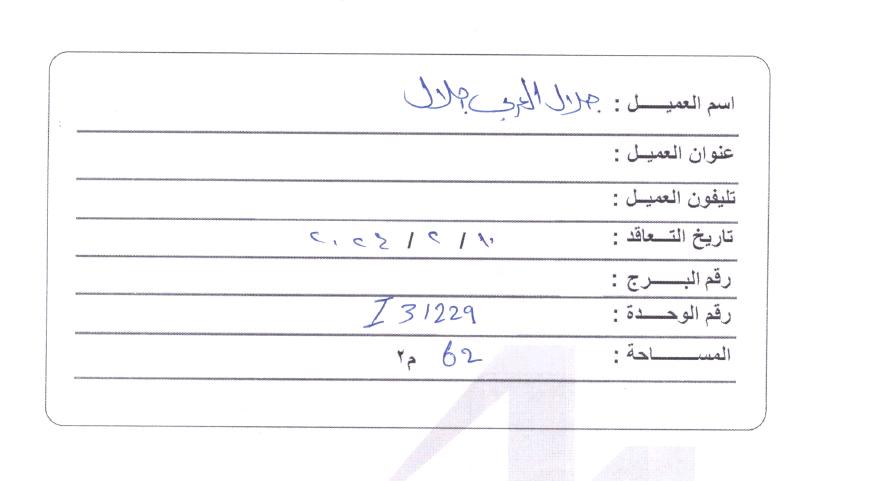 اسم العميــل : جلال العربي جلال
عنوان العميـل :
تليفون العميل :
تاريخ التــعاقد : ١٠ / ٢ / ٢٠٢٤
رقم البــــرج :
رقم الوحــــدة : I 31229
المســــــاحة : 62 م٢